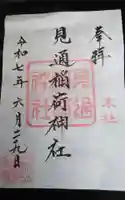 奉拝
本社
見通稲荷神社
令和七年六月二九日